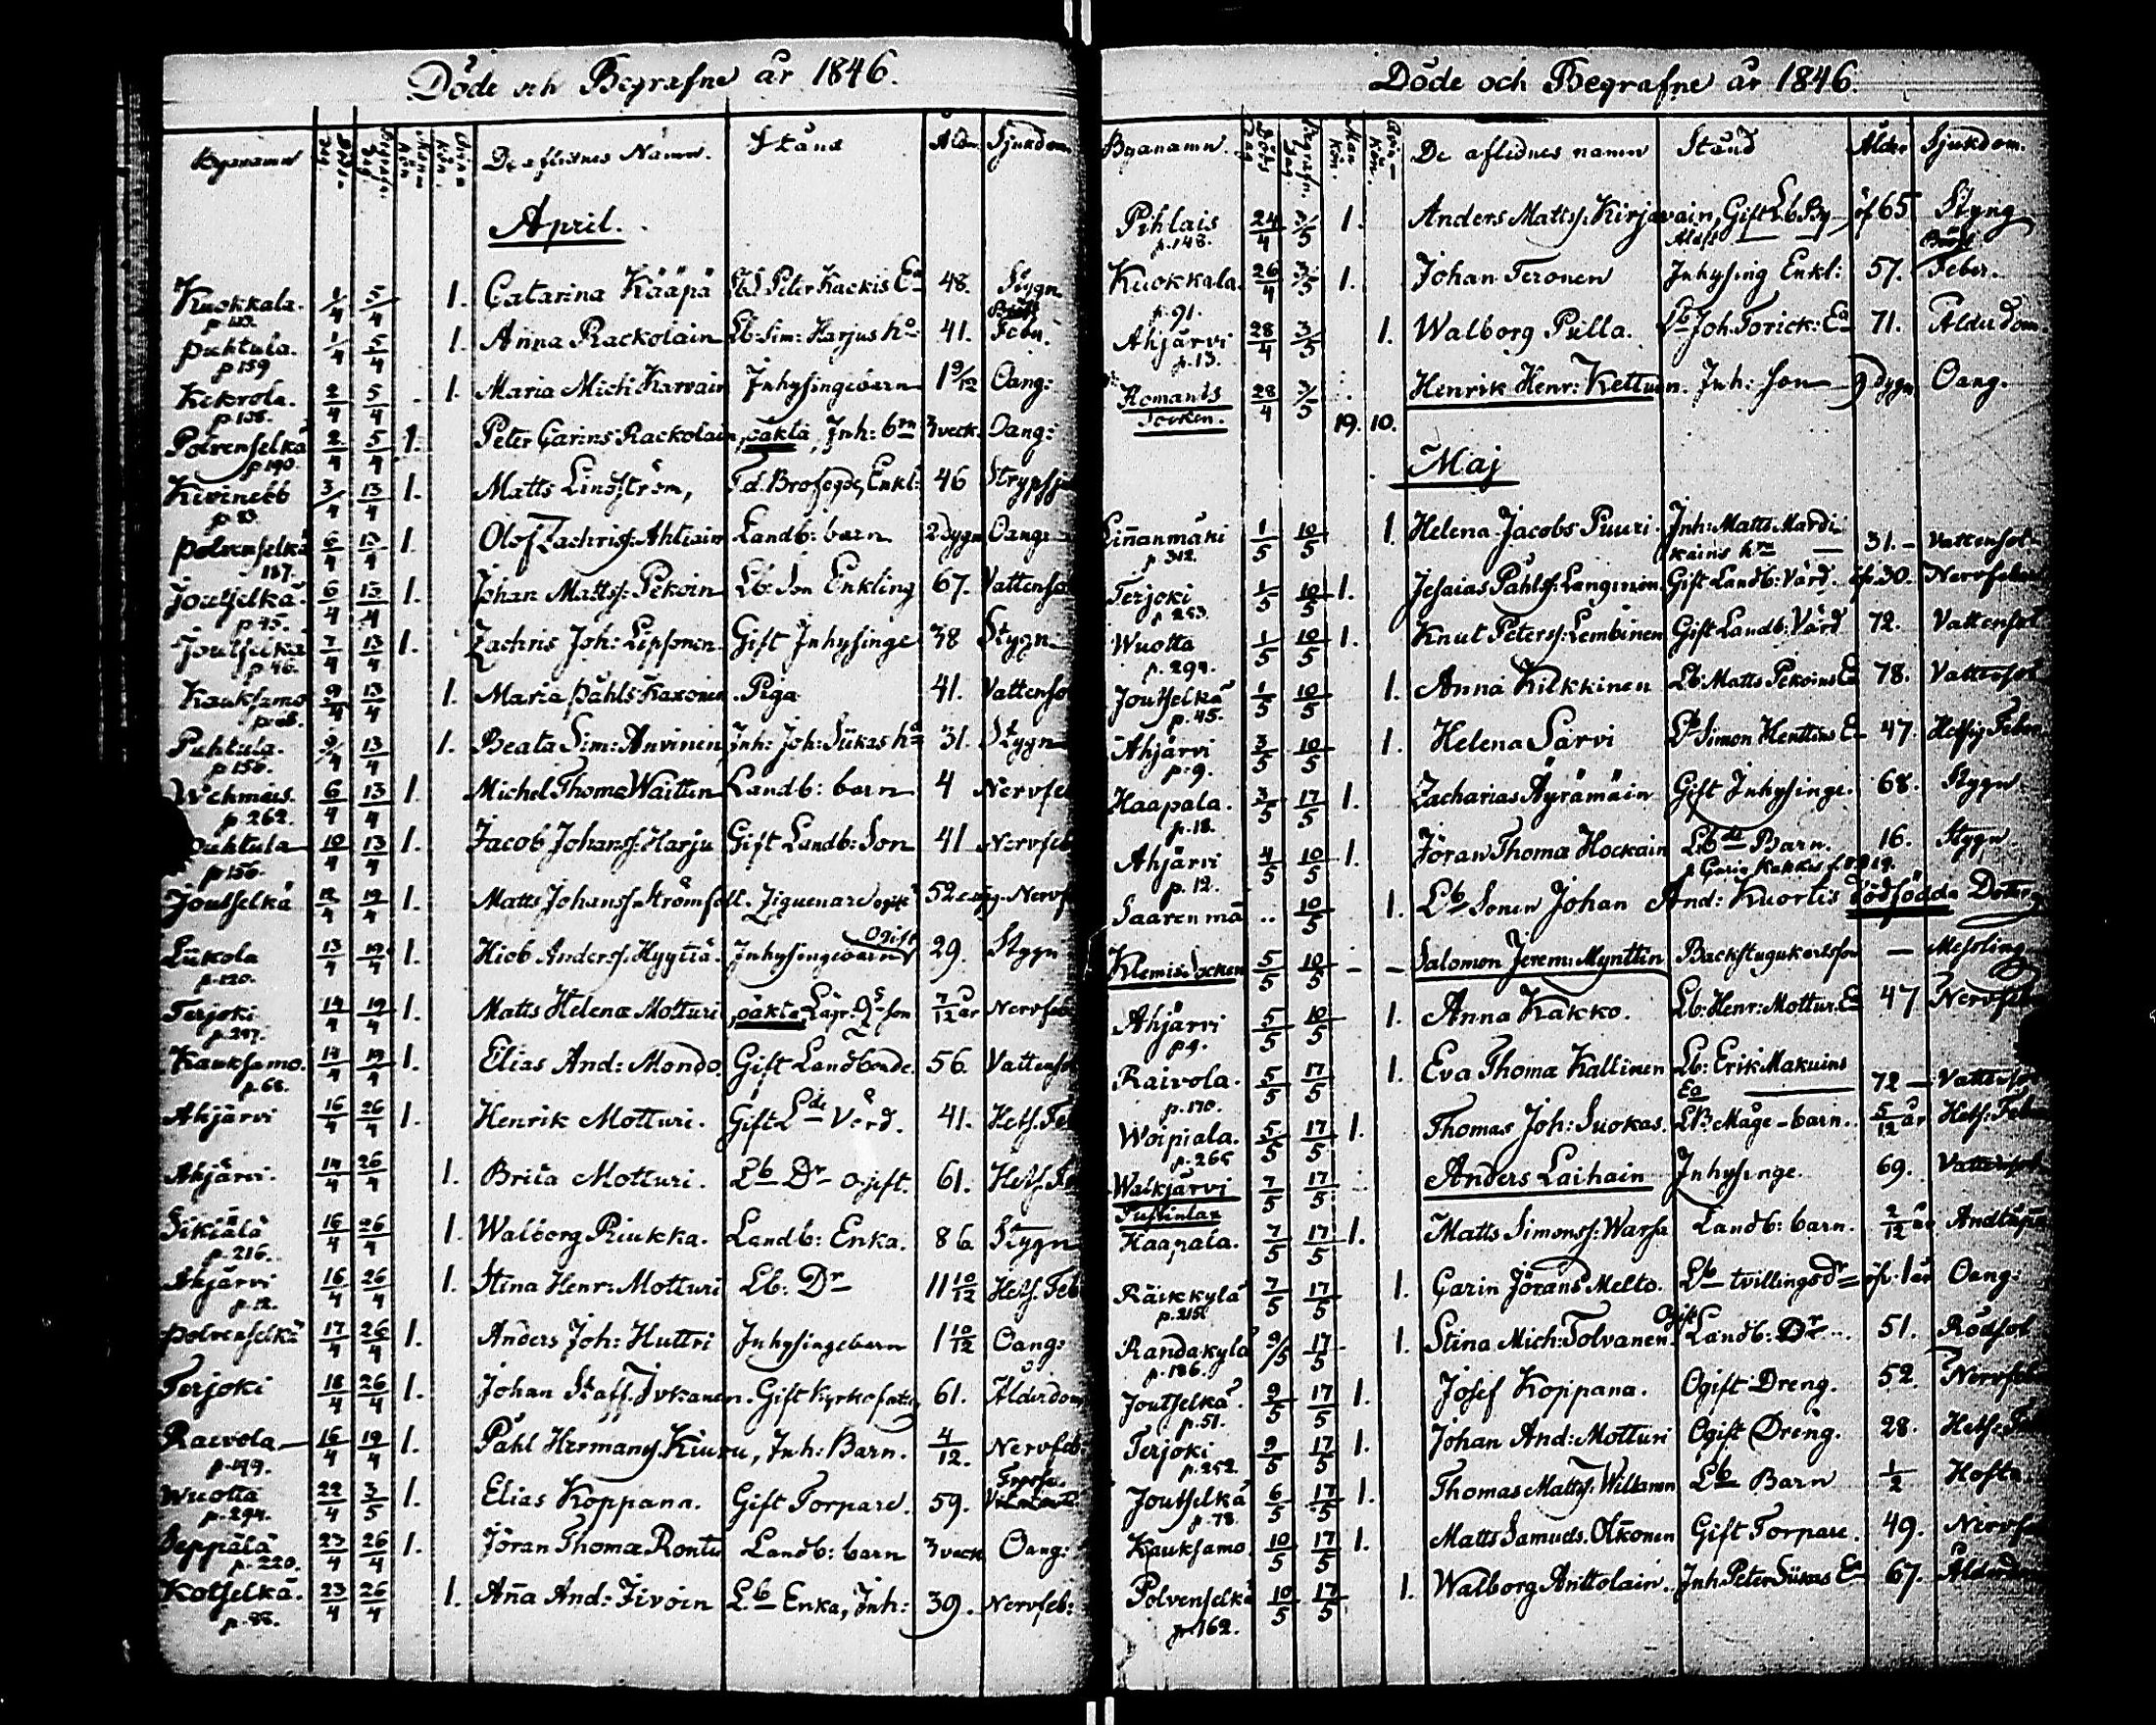 Döde och Begrafne år 1846.
Byanamn De aflidnes Namn. Stånd Ålder Sjukdom
April.
Kuokkala. 1/4 5/4 1. Catarina Kääpä Peter Kackis Ea 48. Stygn
Puhtula. 1/4 5/4 1. Anna Rackolain Lb: Sim: Harjus ha 41. Bröst Feber.
p 159
Kekrola. 2/4 5/4 1. Maria Mich: Karvain Inhysingebarn 1 9/12 Oang:
Polvenselkä 2/4 5/4 1. Peter Carins Rackolain, oäkta, Inh: 3 veck. Oang:
p 190.
Kivinebb 3/4 13/4 1. Matts Lindström, Enkl: 46 Strypsju
Polvenselkä 6/4 13/4 1. Olof Zachriss: Ahtiain Landb: barn 2 dygn Oang:
187.
Joutselkä. 6/4 13/4 1. Johan Mattss: Pekoin Lb: Son Enkling 67. Vattenso
p 45.
Joutselkä 7/4 13/4 1. Zachris Joh: Lipsonen. Gift Inhysinge 38 Stygn
p 46.
Kauksamo 9/4 13/4 1. Maria Påhls Kaxonen. Piga 41. Vattenso
p 68.
Puhtula. 9/4 13/4 1. Beata Sim: Anvinen Inh: Joh: Siikas ha 31. Stygn
Wehmais. 6/4 13/4 1. Michel Thomæ Waittin Landb: barn 4 Nervfeb
p. 262.
Puhtula 10/4 13/4 1. Jacob Johanss: Harju Gift Landb: Son 41 Nervfeb
p 156.
Joutselkä 12/4 19/4 1. Matts Johanss: Strömfelt. Ziguenare ogift 52 Nervf
Liikola 13/4 19/4 1. Hiob Anderss: Hyytiä. Inhysingebarn Ogift 29. Stygn
p. 120.
Terjoki 14/4 19/4 1. Matts Helenæ Motturi oäkta, son 7/12 år Nervfeb
p. 247.
Kauksamo. 14/4 19/4 1. Elias And: Mondo. Gift Landbonde. 56. Vattenso
p. 68.
Ahjärvi 16/4 26/4 1. Henrik Motturi. Gift Lde Värd. 41. Hets. Feb
Ahjärvi. 14/4 26/4 1. Brita Motturi. Lb Dr ogift. 61. Hets. Fe
Sikiälä 16/4 26/4 1. Walborg Riukka. Landb: Enka. 86 Stygn
p. 216.
Ahjärvi 16/4 26/4 1. Stina Henr: Motturi Lb: Dr 11 10/12 Hets. Feb
p. 12.
Polvenselkä 17/4 26/4 1. Anders Joh: Huttri Inhysingebarn 1 10/12 Oang:
Terjoki 18/4 26/4 1. Johan Staff: Ivkanen. Gift 61. Ålderdom
Raivola 16/4 19/4 1. Påhl Hermanss Kiuru, Inh: Barn. 4/12. Nervfeb:
p. 199.
Wuotta 22/4 3/5 1. Elias Koppana. Gift Torpare. 59.
p. 294.
Seppälä 23/4 26/4 1. Jöran Thomæ Rontu Landb: barn 3 veck Oang:
p. 220.
Kotselkä. 23/4 26/4 1. Anna And: Iivoin Lb Enka, Inh: 39. Nervfeb:
p. 88.
Döde och Begrafne år 1846.
Byanamn. De aflednes namn Stånd Ålder Sjukdom.
Pihlais 24/4 3/5 1. Anders Mattss: Kirjavain, Gift Lb By öf 65 Styng
p. 148.
Kuokkala. 26/4 3/5 1. Johan Teronen Inhysing Enkl: 57. Bröst Feber.
p. 91.
Ahjärvi 28/4 3/5 1. Walborg Pulla. Lb Joh: Torick: Ea 71. Ålderdom.
p. 13.
Nomanis 28/4 3/5 Henrik Henr: Kettunen. Inh: Son 9 dygn Oang.
Socken.
19. 10.
Maj
Linnanmäki 1/5 10/5 1. Helena Jacobs Puuri. Inh: Matts Mardi
p 312. kains 31. Vattensot
Terjoki 1/5 10/5 1. Jesaias Påhlss: Langinen Gift Landb: Värd. öfv. 30. Nervfeber
p 253.
Wuotta 1/5 10/5 1. Knut Peterss: Lembinen Gift Landb: Värd 72. Vattensot
p. 294.
Joutselkä 1/5 10/5 1. Anna Kilkkinen Lb: Matts Pekoins Ea 78. Vattensot
p. 45.
Ahjärvi 3/5 10/5 1. Helena Särvi Lb Simon Henttins E 47. Hetsig Feber
p. 9.
Haapala. 3/5 17/5 1. Zacharias Äyrämäin Gift Inhysinge. 68. Stygn.
p. 18.
Ahjärvi 4/5 10/5 1. Jöran Thomæ Hockain Lbde Barn. 16. Stygn.
p. 12.
Saarenmä .. 10/5 1. Lb Sonen Johan And: Kuortis dödfödda Dotter
Klemis Socken 5/5 10/5 – – Salomon Jerem: Mynttin Backstugukarlsson — Messling
Ahjärvi 5/5 10/5 1. Anna Kakko. Lb: Henr: Motturi Ea 47 Nervfeb
p 9.
Raivola. 5/5 17/5 1. Eva Thomæ Kallinen Lb: Erik Makuins
p. 170. Ea 72 Vattensot
Woipiala. 5/5 17/5 1. Thomas Joh: Suokas. Lb: Måge-barn. 5/12 år Hets: Feber
p. 266
Walkjärvi 7/5 17/5 Anders Laihain Inhysinge. 69. Vattensot
Pustinlax
Haapala. 7/5 17/5 1. Matts Simonss: Warsa Landb: barn. 2/12 år Andtäppa
Räikkylä 7/5 17/5 1. Carin Jörans Melto. Lb tvillings dr öfv. 1 år Oang:
p. 215.
Randakylä 9/5 17/5 1. Stina Mich: Tolvanen. Ogift Landb: Dr 51. Rödsot
p. 186.
Joutselkä. 9/5 17/5 1. Josef Koppana. Ogift Dreng. 52. Nervfeb
p. 51.
Terjoki 9/5 17/5 1. Johan And: Motturi Ogift Dreng. 28. Hets: Feb
p. 252.
Joutselkä 6/5 17/5 1. Thomas Mattss: Lb Barn 1/2 Hosta
p. 78.
Kauksamo 10/5 17/5 1. Matts Samuels. Olkonen Gift Torpare. 49. Nervfeb
Polvenselkä 10/5 17/5 1. Walborg Anttolain. Inh Peter Siikas Ea 67. Ålderdom
p. 162.